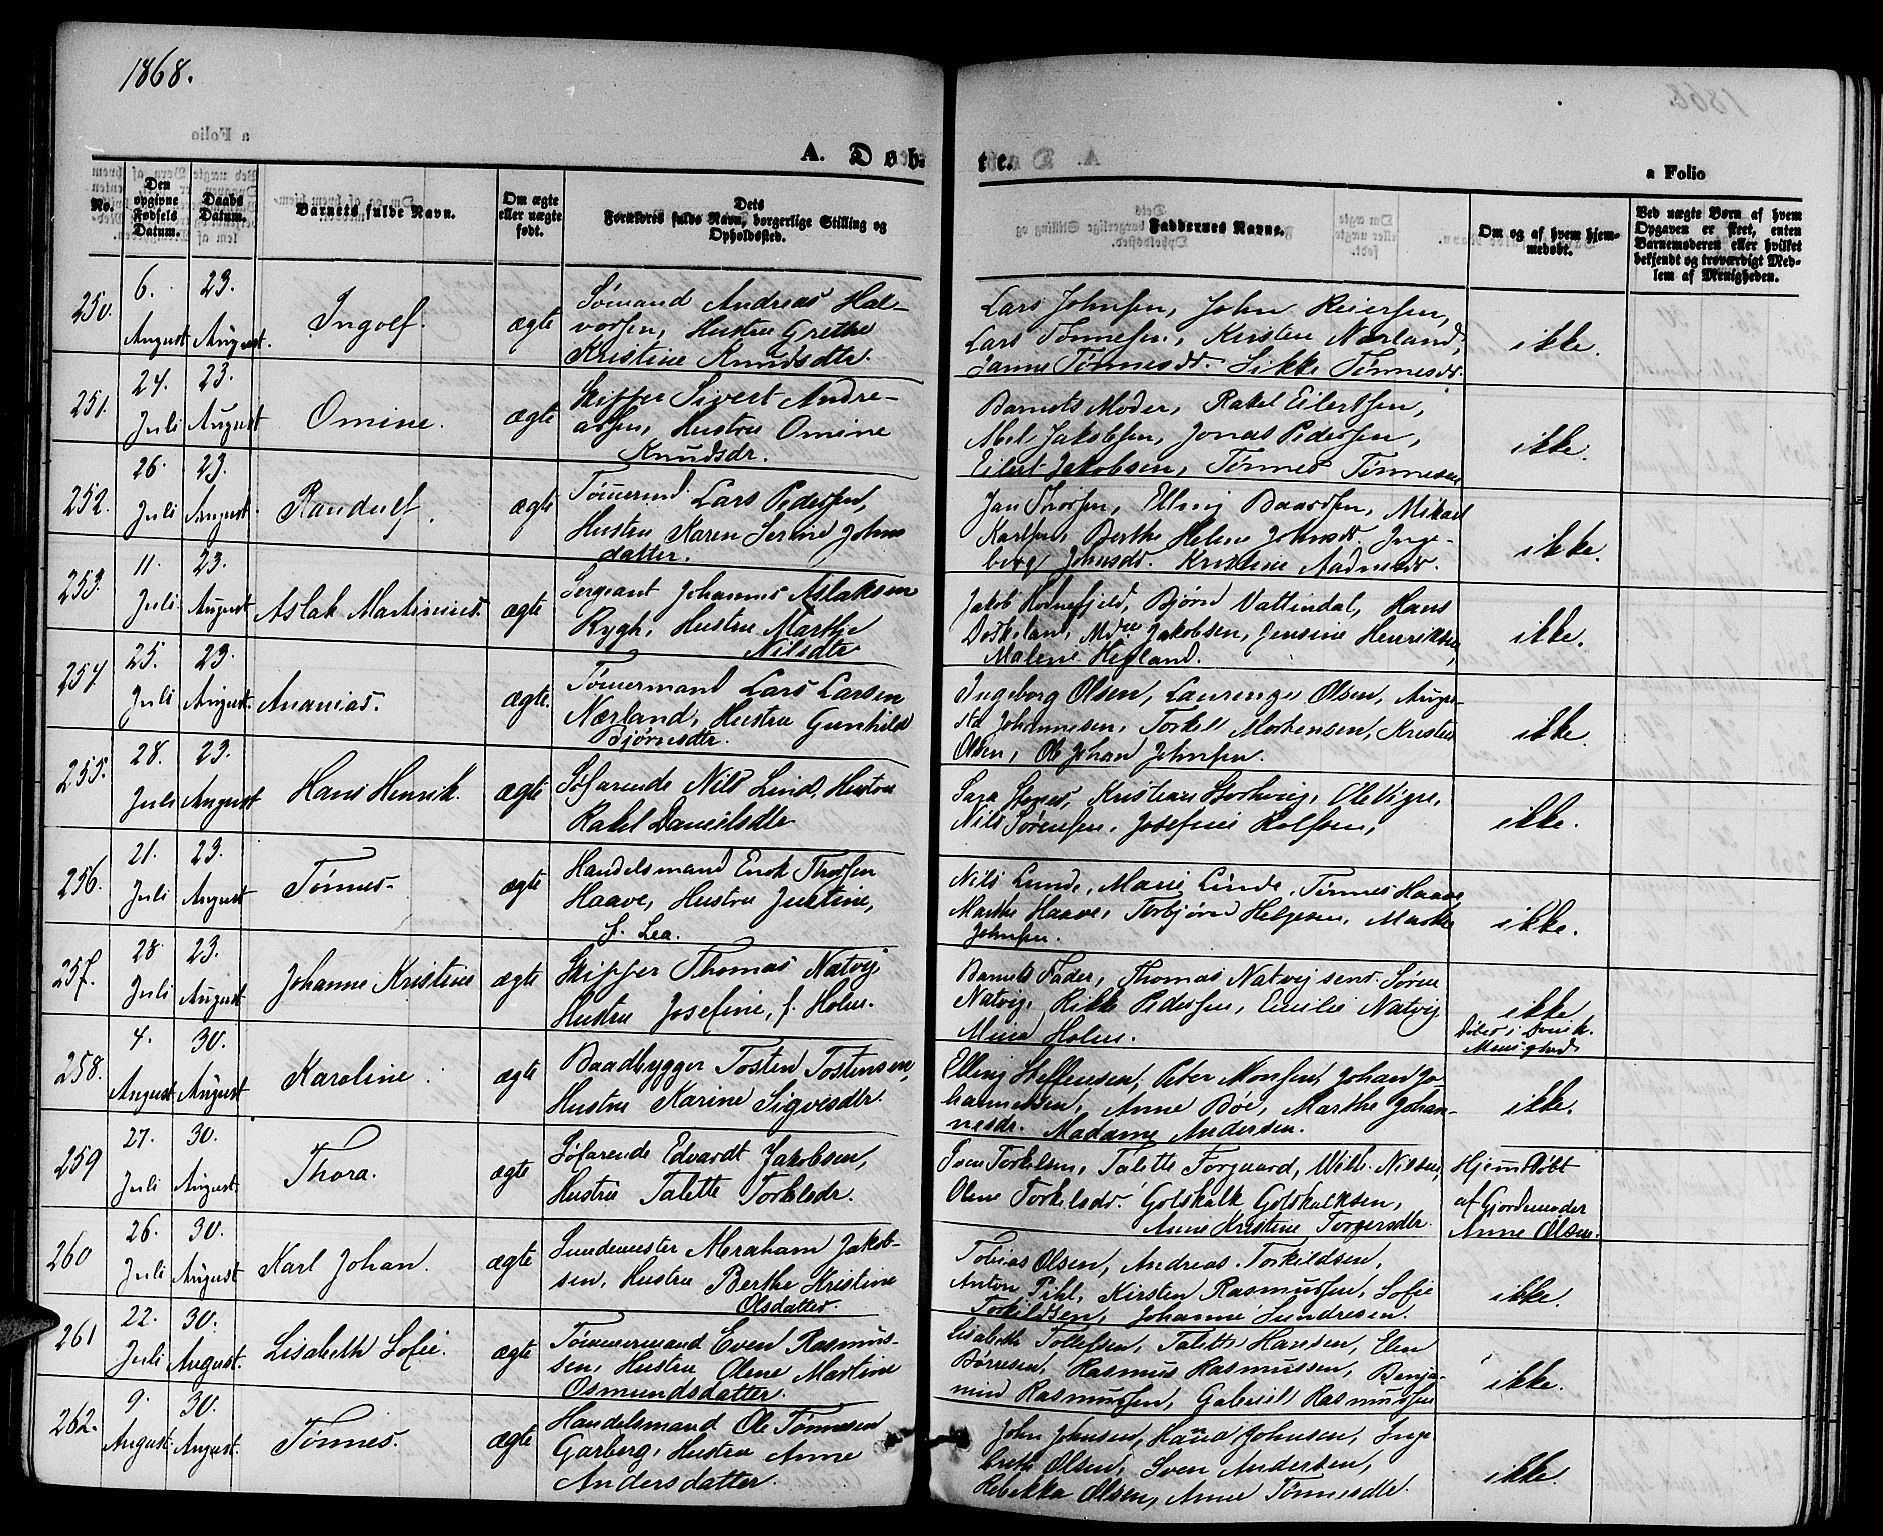 1868.
A. Døb-
te.
a Folio
No.
Den opgivne Fødsels Datum.
Daabs Datum.
Barnets fulde Navn.
Om ægte eller uægte født.
Dets Forældres fulde Navn, borgerlige Stilling og Opholdssted.
Faddernes Navne.
Om og af hvem hjemmedøbt.
Ved uægte Børn af hvem Opgaven er skeet, enten Barnemoderen eller hvilket bekjendt og troværdigt Medlem af Menigheden.
250. 6. August 23. August. Ingolf. ægte
Sømand Andreas Hal-
vorsen, Hustru Grethe
Kristine Knudsdtr.
Lars Johnsen, John Reiersen,
Lars Tønnesen, Kirsten Nærland,
Janne Tønnesdt. Sikke Tønnesdt.
ikke.
251. 24. Juli 23. August Omine. ægte
Skipper Sivert Andre-
asen, Hustru Omine
Knudsdr.
Barnets Moder, Rakel Eilertsen,
Abel Jakobsen, Jonas Pedersen,
Eilert Jakobsen, Tønnes Tønnesen
ikke.
252. 26. Juli 23. August. Randulf. ægte
Tømermd. Lars Pedersen,
Hustru Karen Serine Johns
datter.
Jan Thorsen, Elling Baardsen, Mikael
Karlsen, Berthe Helene Johnsdt. Inge-
borg Johnsdt. Kristine Aadnesdt.
ikke.
253. 11. Juli 23. August Aslak Martinius. ægte
Sergeant Johannes Aslaksen
Rygh, Hustru Marthe
Nilsdtr
Jakob Hodnefjeld, Bjørn Vattendal, Hans
Jakobsen, Jensine Henriksen,
Malene Hegland.
ikke.
254 25. Juli 23. August. Ananias. ægte.
Tømermand Lars Larsen
Nærland, Hustru Gunhild
Bjørnsdtr.
Ingeborg Olsen, Laurenze Olsen, Augu-
sta Johannesen, Torkel Mortensen, Kristen
Olsen, Ole Johan Johnsen.
ikke.
255. 28. Juli 23. August Hans Henrik. ægte
Søfarende Nils Lind, Hustru
Rakel Danielsdtr
Kristian Ole Vigre,
Nils Sørensen, Josefine Rolfsen,
ikke.
256. 21. Juli 23. August Tønnes- ægte
Handelsmand Enok Thorsen
Haave, Hustru Justine,
f. Lea.
Nils Lunde, Marie Linde, Tønnes Haave,
Marthe Haave, Torbjørn Helgesen, Marthe
Johnsen.
ikke.
257. 28 Juli 23. August Johanne Kristine ægte
Skipper Thomas Natvig,
Hustru Josefine, f. Holm.
Barnets Fader, Thomas Natvig sen. Søren
Natvig, Rikke Pedersen, Emilie Natvig,
Mina Holm.
ikke
Døbt i Domk.
Menighed
258. 4. August 30. August Karoline. ægte
Baadbygger Tosten Tostensen,
Hustru Karine Sigvesdtr.
Elling Steffensen, Peter Monsen, Johan Jo-
hannessen, Anne Bøe, Marthe Johan-
nesdr. Madame Andersen.
ikke.
259 27. Juli 30. August Thora. ægte
Søfarende Edvardt Jakobsen,
Hustru Talette Torkelsdr.
Sven Torkelsen, Talette Forgaard, Wilh. Nilsen,
Olene Torkelsdr. Gotskalk Gotskalksen,
Anne Kristine Torgersdtr.
Hjemdøbt
af Gjordemoder
Anne Olsen.
260 26. Juli 30. August Karl Johan. ægte
Sundemester Abraham Jakob-
sen, Hustru Berthe Kristine
Olsdatter.
Tobias Olsen, Andreas Torkildsen,
Anton Pihl, Kirsten Rasmussen, Sofie
Torkildsen, Johanne Sundresen.
ikke.
261 22. Juli 30. August. Lisabeth Sofie. ægte
Tømmermand Even Rasmus-
sen, Hustru Olene Martine
Osmundsdatter.
Lisabeth Tollefsen, Talette Hansen, Elen
Børnsen, Rasmus Rasmussen, Benja-
min Rasmussen, Gabriel Rasmussen
ikke.
262. 9. August. 30. August. Tønnes. ægte
Handelsmand Ole Tønnesen
Garborg, Hustru Anne
Andersdatter.
John Johnsen, Hana Johnsen, Inge
Olsen, Sven Andersen,
Rebekka Olsen, Anne Tønnesdtr.
ikke.